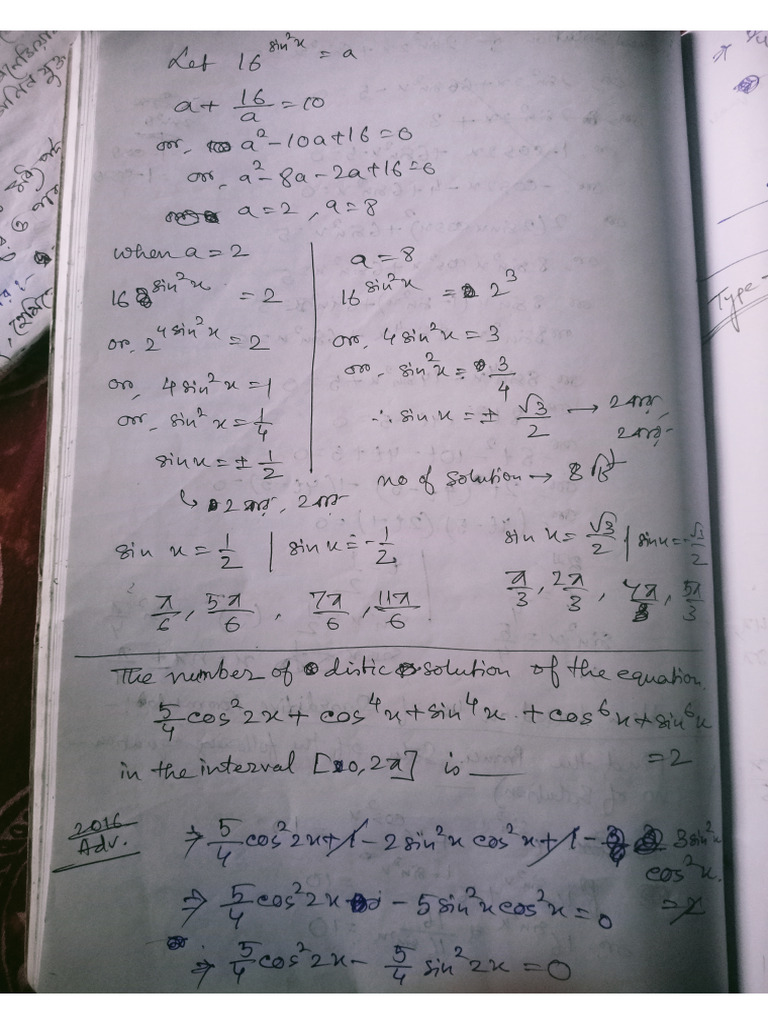 Let 16^sin²x = a
a + 16/a = 10
or, a² - 10a + 16 = 0
or, a² - 8a - 2a + 16 = 0
a = 2, a = 8
when a = 2
16^sin²x = 2
or, 2^4sin²x = 2
or, 4sin²x = 1
or, sin²x = 1/4
sinx = ± 1/2
↳ 2 বার, 2 বার
a = 8
16^sin²x = 2³
or, 4sin²x = 3
or, sin²x = 3/4
∴ sin x = ± √3/2 → 2 বার,
2 বার
no of solution → 8 टি
sin x = 1/2 | sin x = -1/2
π/6, 5π/6, 7π/6, 11π/6
sin x = √3/2 | sinx = -√3/2
π/3, 2π/3, 4π/3, 5π/3
The number of distic solution of the equation
5/4 cos²2x + cos⁴x + sin⁴x + cos⁶x + sin⁶x = 2
in the interval [0, 2π] is ___
2016
Adv.
⇒ 5/4 cos²2x + 1 - 2sin²x cos²x + 1 - 3sin²x cos²x = 2
⇒ 5/4 cos²2x - 5sin²x cos²x = 0
⇒ 5/4 cos²2x - 5/4 sin²2x = 0
Type -